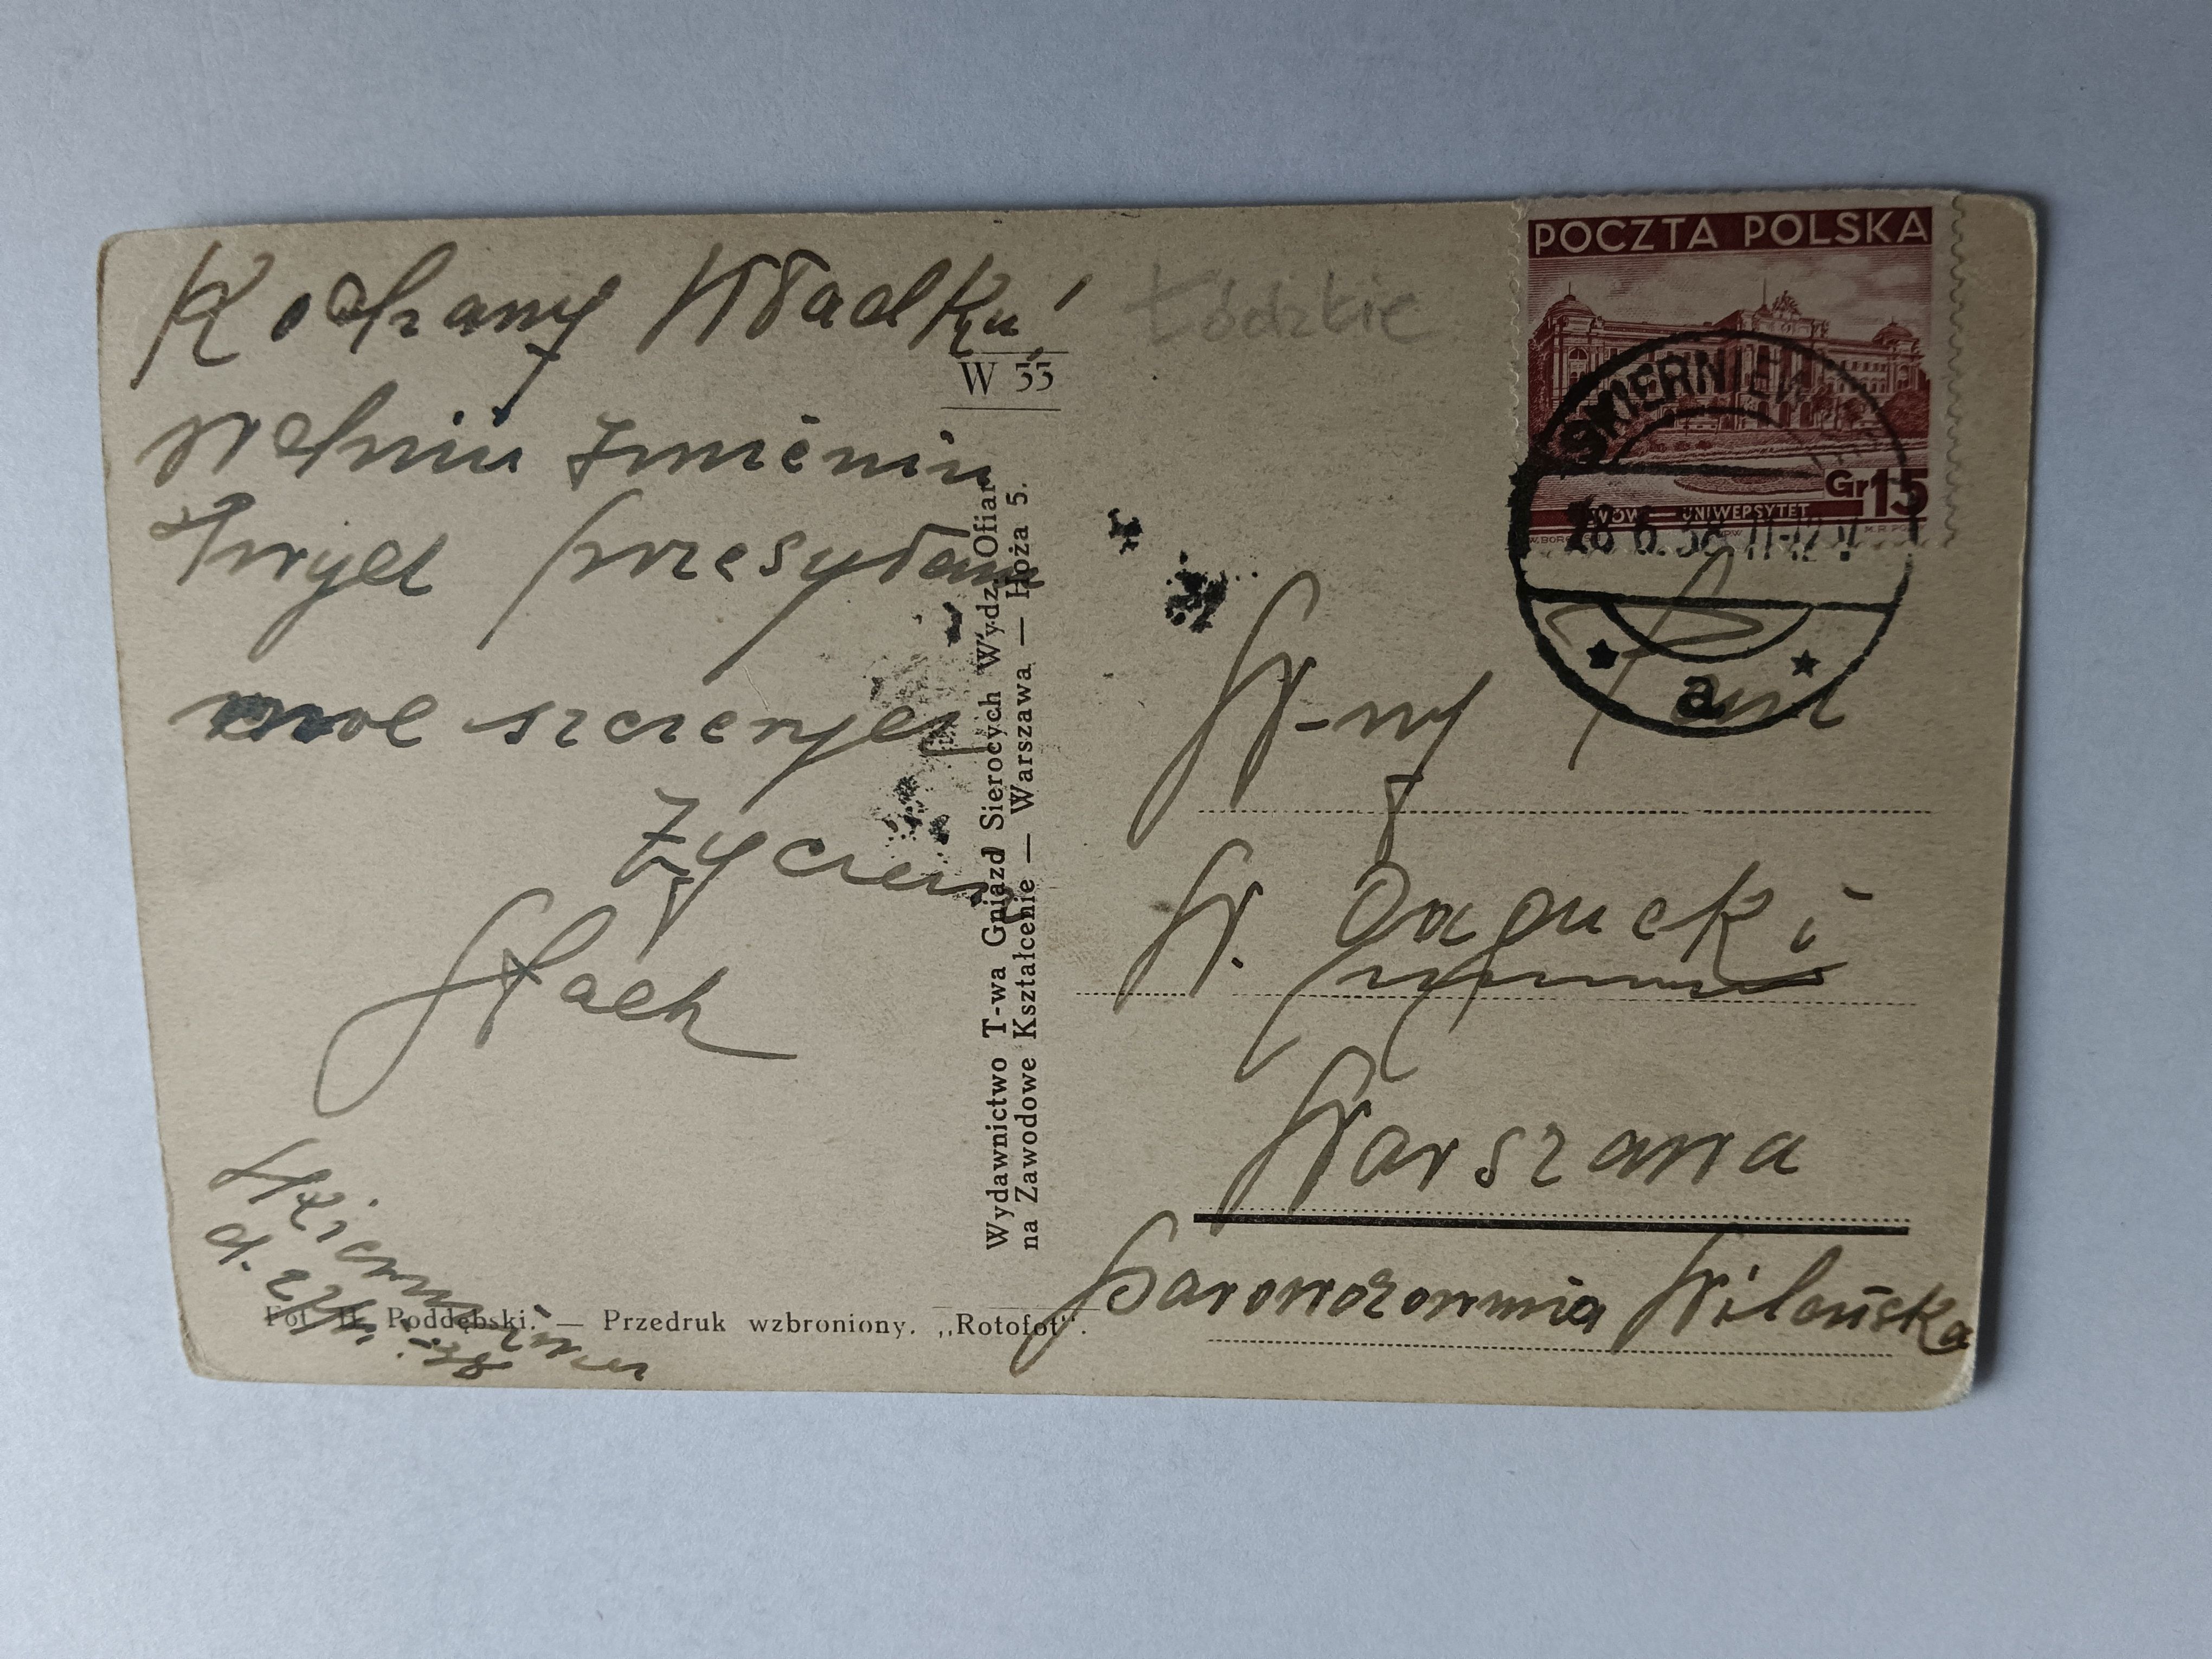 Kochany Władku!
W dniu Imienin
Twych przesyłam
moc szczerych
Życzeń
Stach
Skierniewice
d.
Łódzkie
W 55
Wydawnictwo T-wa Gniazd Sierocych Wydz. Ofiar
na Zawodowe Kształcenie — Warszawa — Hoża 5.
Fot. H. Poddębski. — Przedruk wzbroniony. ,,Rotofot".
POCZTA POLSKA
LWÓW - UNIWERSYTET
Gr 15
SKIERNIEW
28 6.38 11-12
a
W-ny Pan
W.
Warszawa
Parowozownia Wileńska